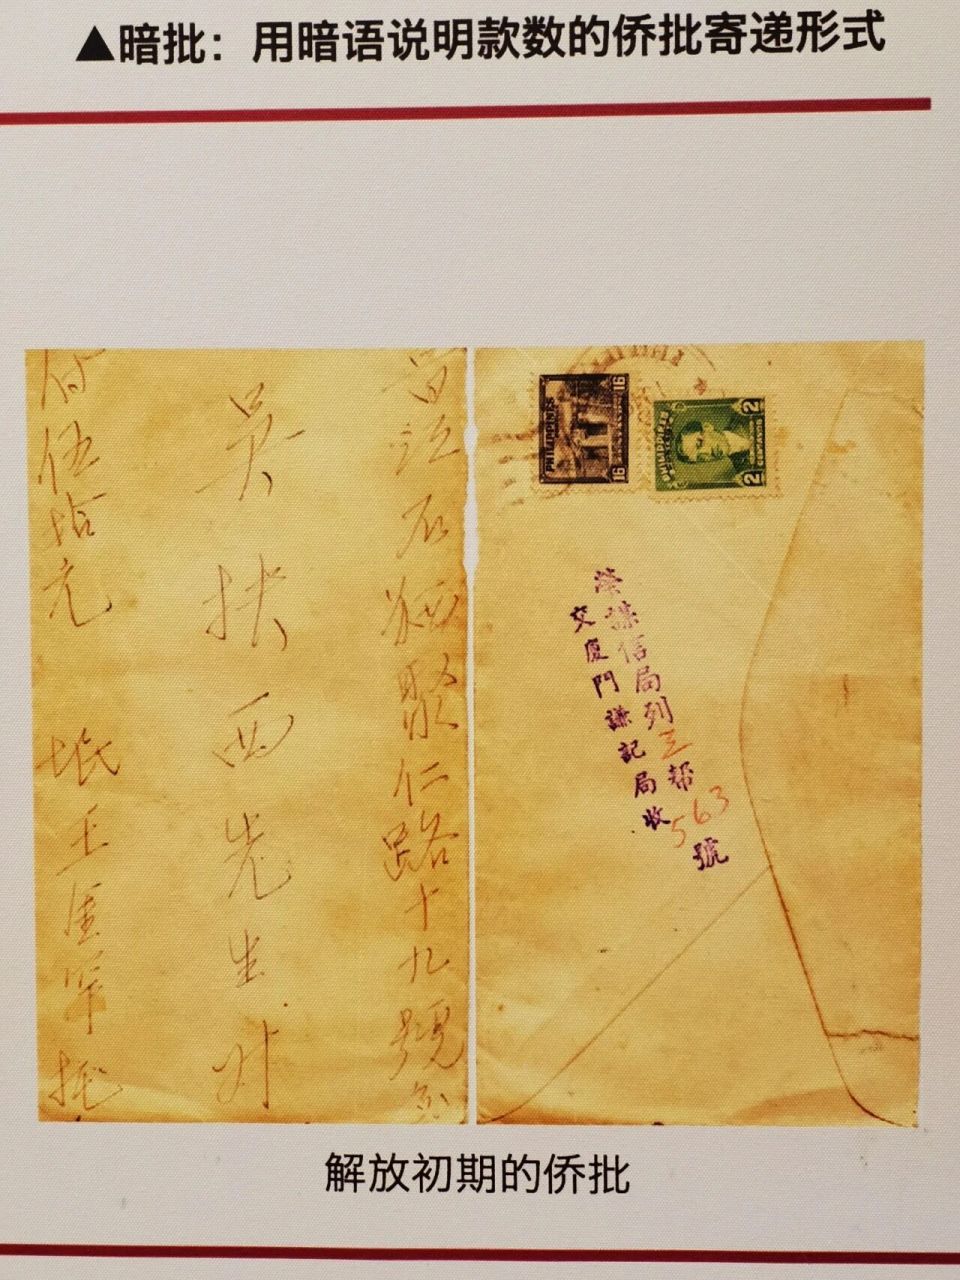 ▲暗批：用暗语说明款数的侨批寄递形式
石獅聚仁路十九號
吳扶西先生
付伍拾元
PHILIPPINES
16
16
2
2
榮謀信局列三帮563號
交廈門謙記局收
解放初期的侨批